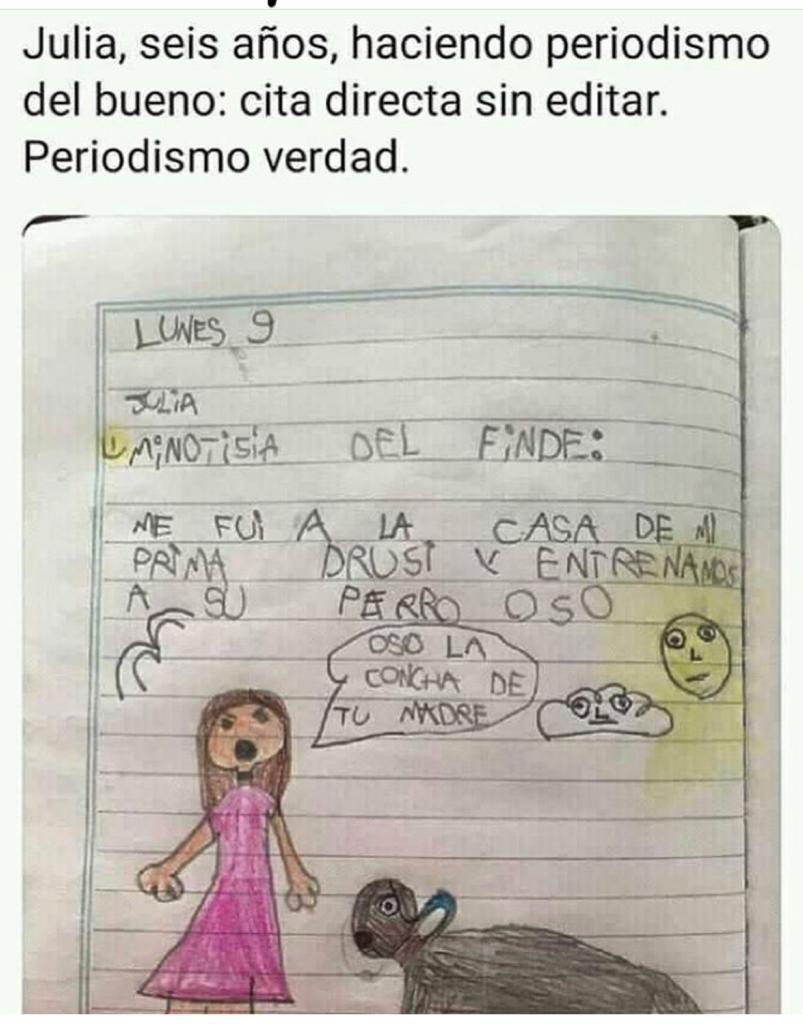 Julia, seis años, haciendo periodismo
del bueno: cita directa sin editar.
Periodismo verdad.
LUNES 9
JULIA
MiNOTiSiA DEL FiNDE:
ME FUi A LA CASA DE MI
PRiMA DRUSi Y ENTRENAMOS
A SU PERRO OSO
OSO LA
CONCHA DE
TU MADRE